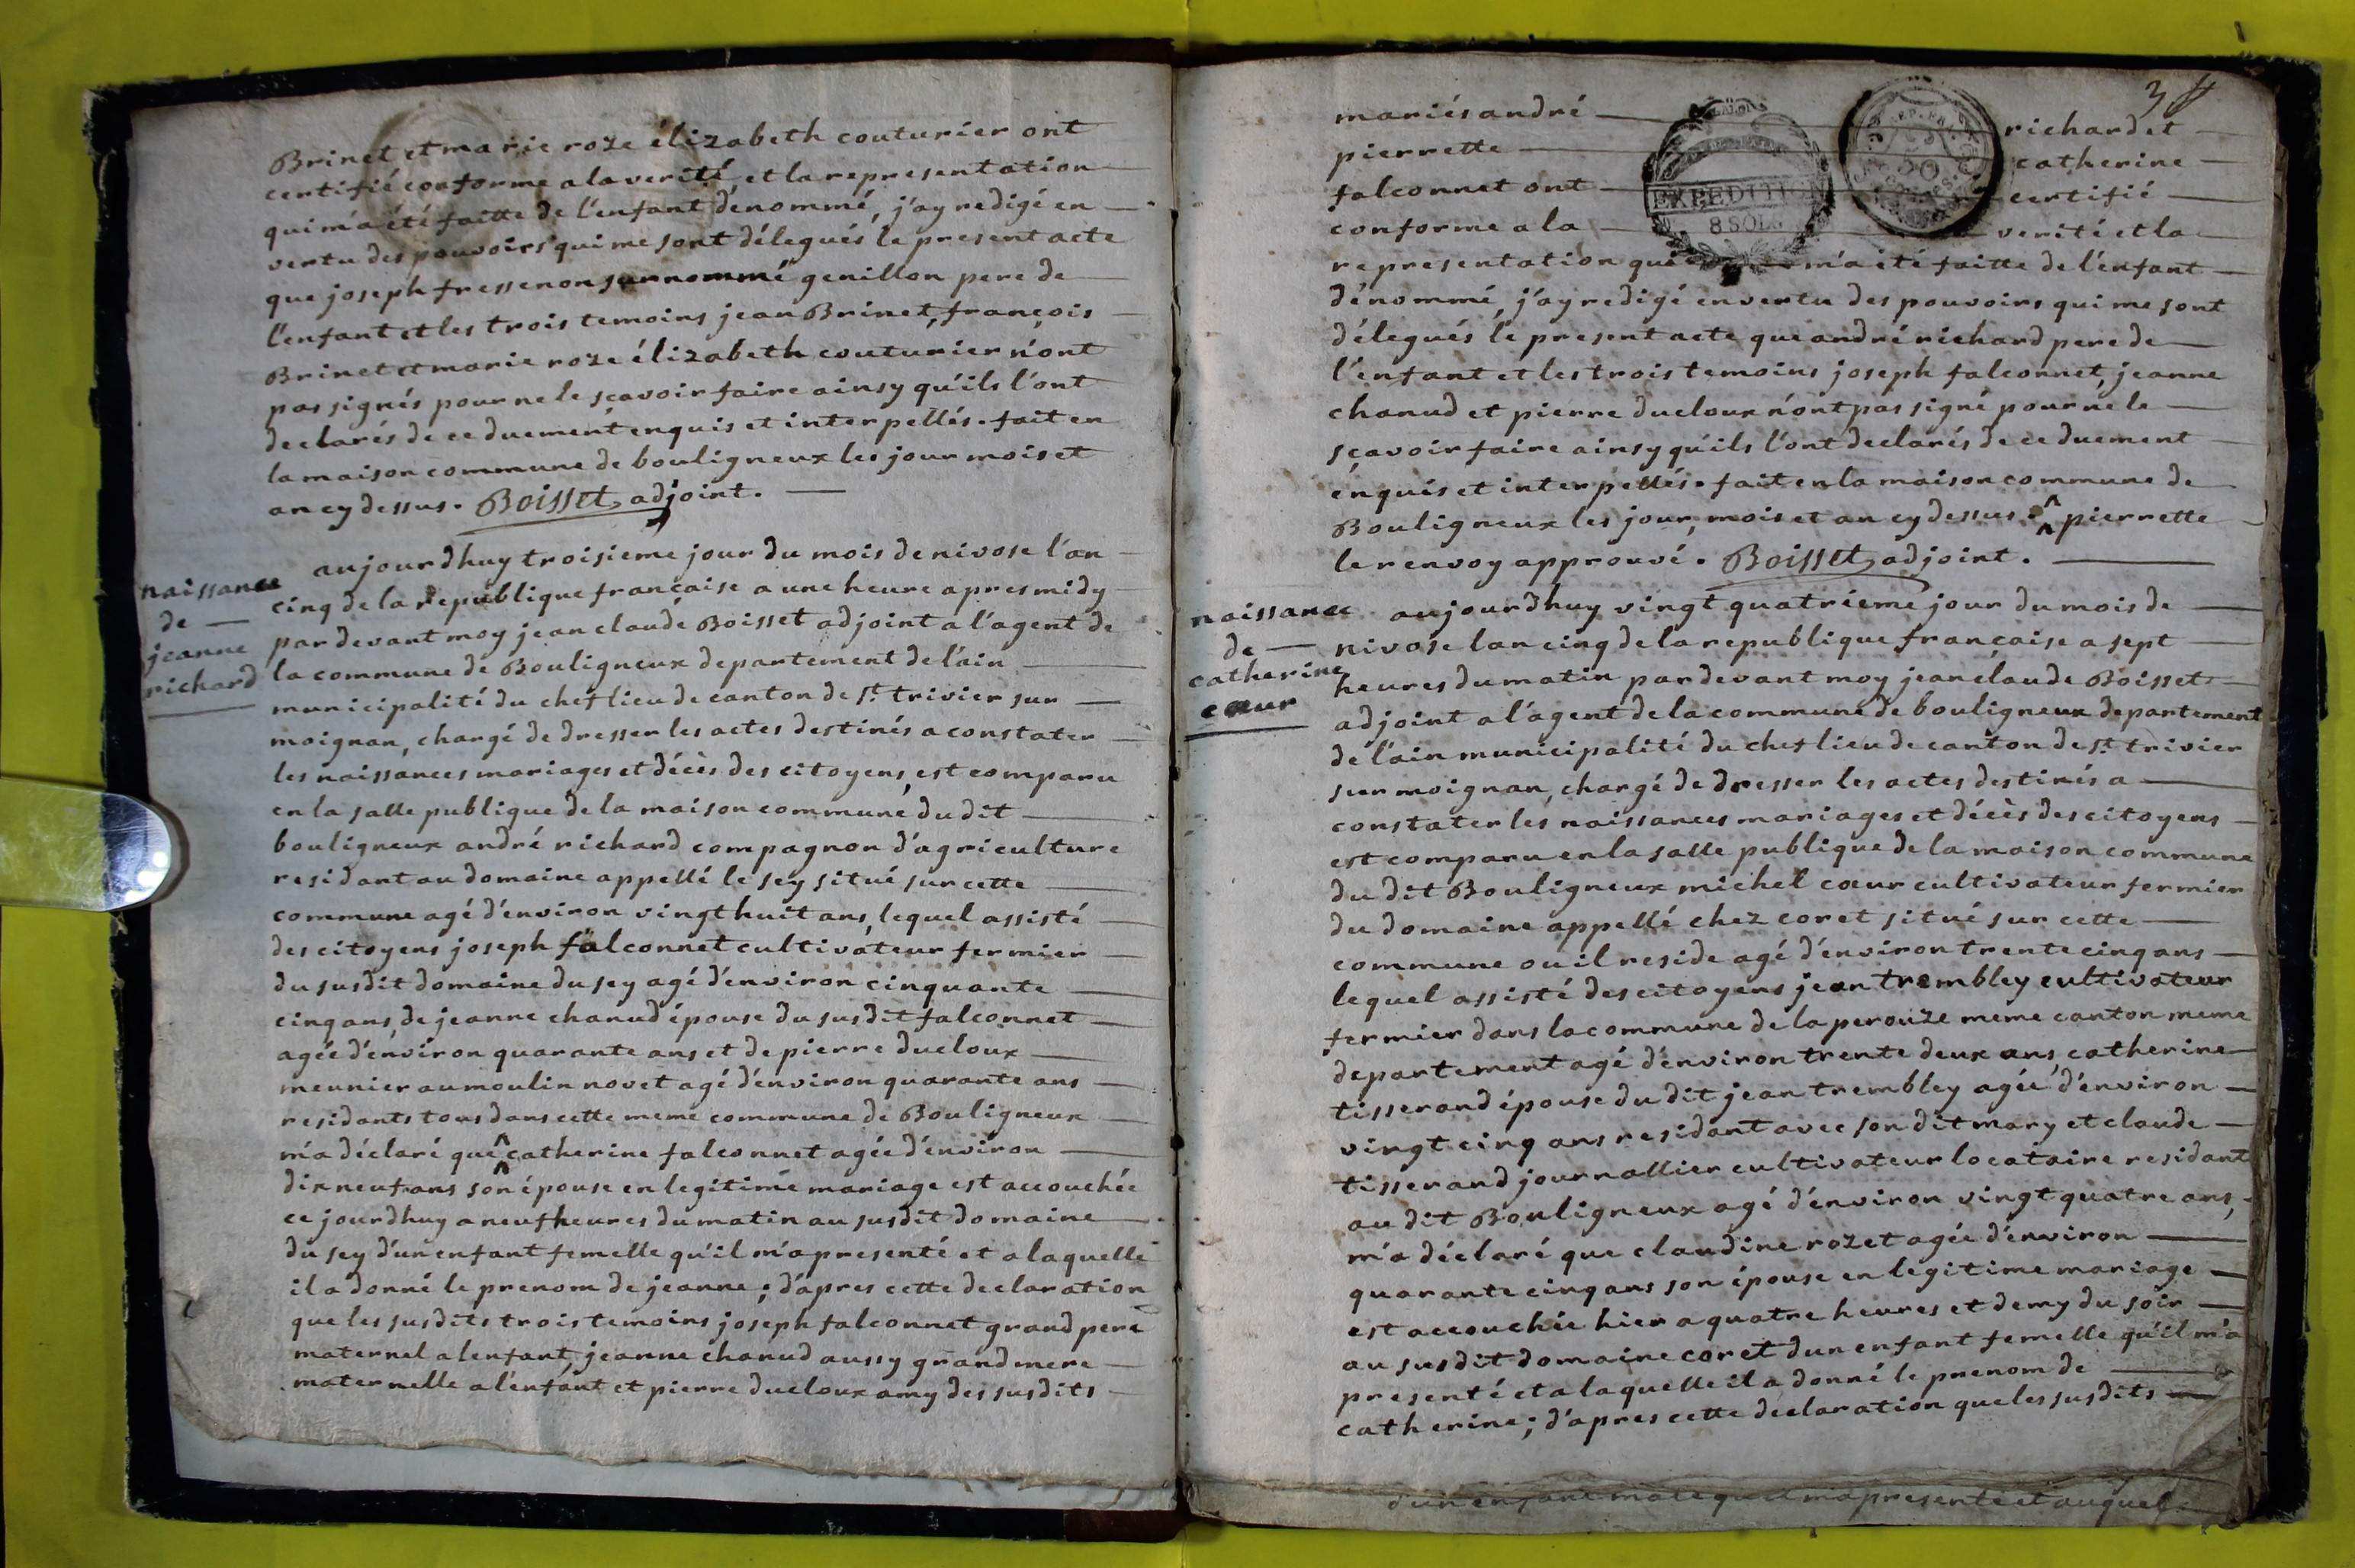 Brinet et marie roze élizabeth couturier ont
certifié conforme a la verité et la representation
qui m'a été faitte de l'enfant dénommé, j'ay redigé en
vertu des pouvoirs qui me sont délegués le present acte
que joseph fressenon surnommé genillon pere de
l'enfant et les trois temoins jean Brinet, françois
Brinet et marie roze élizabeth couturier n'ont
pas signés pour ne le sçavoir faire ainsy qu'ils l'ont
declarés de ce duement enquis et interpellés. fait en
la maison commune de bouligneux les jour mois et
an cy dessus. Boisset adjoint.
naissance
de
jeanne
richard
aujourdhuy troisieme jour du mois de nivose l'an
cinq de la republique française a une heure apres midy
par devant moy jean claude Boisset adjoint a l'agent de
la commune de Bouligneux departement de l'ain
municipalité du chef lieu de canton de st. trivier sur
moignan, chargé de dresser les actes destinés a constater
les naissances mariages et décès des citoyens, est comparu
en la salle publique de la maison commune du dit
bouligneux andré richard compagnon d'agriculture
residant au domaine appellé le sey situé sur cette
commune agé d'environ vingt huit ans, lequel assisté
des citoyens joseph falconnet cultivateur fermier
du susdit domaine du sey agé d'environ cinquante
cinq ans, de jeanne chanud épouse du susdit falconnet
agée d'environ quarante ans et de pierre ducloux
meunier au moulin novet agé d'environ quarante ans
residants tous dans cette meme commune de Bouligneux
m'a déclaré que ^ catherine falconnet agée d'environ
dix neuf ans son épouse en legitime mariage est accouchée
ce jourdhuy a neuf heures du matin au susdit domaine
du sey d'un enfant femelle qu'il m'a presenté et a laquelle
il a donné le prenom de jeanne; d'apres cette declaration
que les susdits trois temoins joseph falconnet grand pere
maternel a lenfant, jeanne chanud aussy grand mere
maternelle a l'enfant et pierre ducloux amy des susdits
3
mariés andré richard et
pierrette catherine
falconnet ont certifié
conforme a la verité et la
EXPEDITION
8 SOLS
representation qui m'a été faitte de l'enfant
dénommé, j'ay redigé en vertu des pouvoirs qui me sont
délegués le present acte que andré richard pere de
l'enfant et les trois temoins joseph falconnet, jeanne
chanud et pierre ducloux n'ont pas signé pour ne le
sçavoir faire ainsy qu'ils l'ont declarés de ce duement
enquis et interpellés. fait en la maison commune de
Bouligneux les jour, mois et an cy dessus. ^ pierrette
le renvoy approuvé. Boisset adjoint.
naissance
de
catherine
cœur
aujourdhuy vingt quatrieme jour du mois de
nivose lan cinq de la republique française a sept
heures du matin par devant moy jean claude Boisset
adjoint a l'agent de la commune de bouligneux departement
de l'ain municipalité du chef lieu de canton de st. trivier
sur moignan, chargé de dresser les actes destinés a
constater les naissances mariages et décès des citoyens
est comparu en la salle publique de la maison commune
du dit Bouligneux michel cœur cultivateur fermier
du domaine appellé chez coret situé sur cette
commune ou il reside agé d'environ trente cinq ans
lequel assisté des citoyens jean trembley cultivateur
fermier dans la commune de la perouze meme canton meme
departement agé d'environ trente deux ans, catherine
tisserand épouse du dit jean trembley agée d'environ
vingt cinq ans residant avec son dit mary et claude
tisserand journallier cultivateur locataire residant
au dit Bouligneux agé d'environ vingt quatre ans,
m'a déclaré que claudine rozet agée d'environ
quarante cinq ans son épouse en legitime mariage
est accouchée hier a quatre heures et demy du soir
au susdit domaine coret dun enfant femelle qu'il m'a
presenté et a laquelle il a donné le prenom de
catherine; d'apres cette declaration que les susdits
d'un enfant male qu'il m'a presenté et auquel